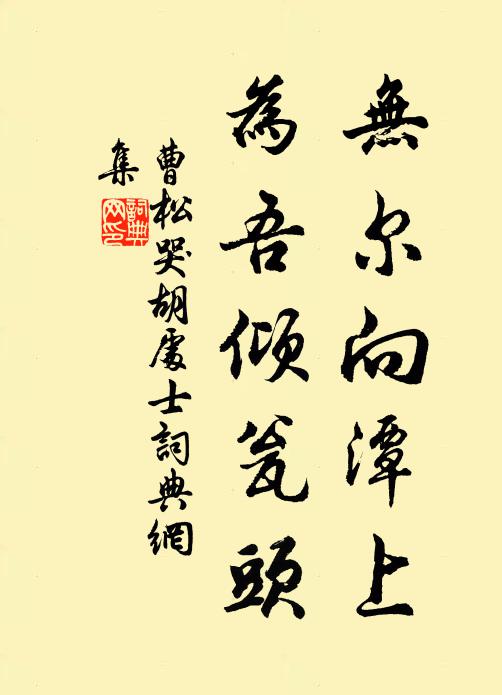 無尔向潭上
為吾傾瓮頭
曹松哭胡處士詞典網
集
詞典
网印